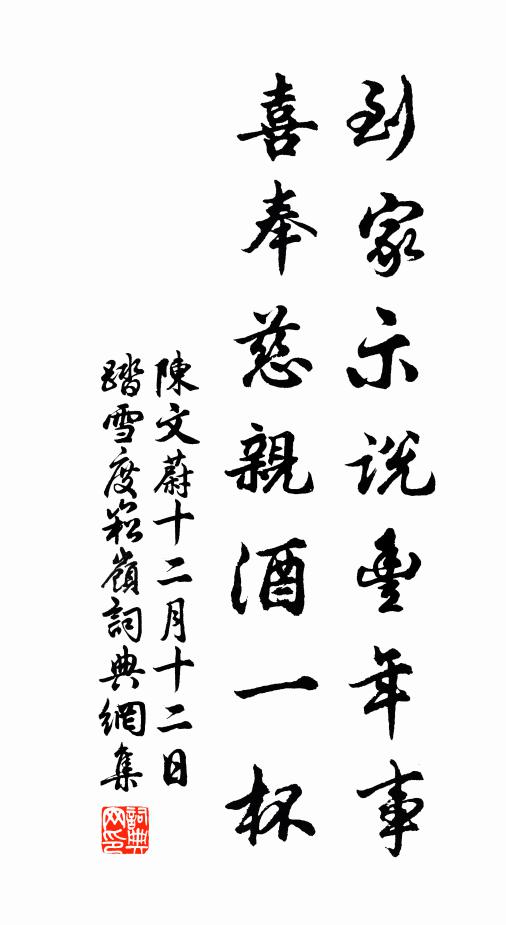 到家示説豐年事
喜奉慈親酒一杯
陳文蔚十二月十二日
踏雪度箬嶺詞典網集
詞典网印